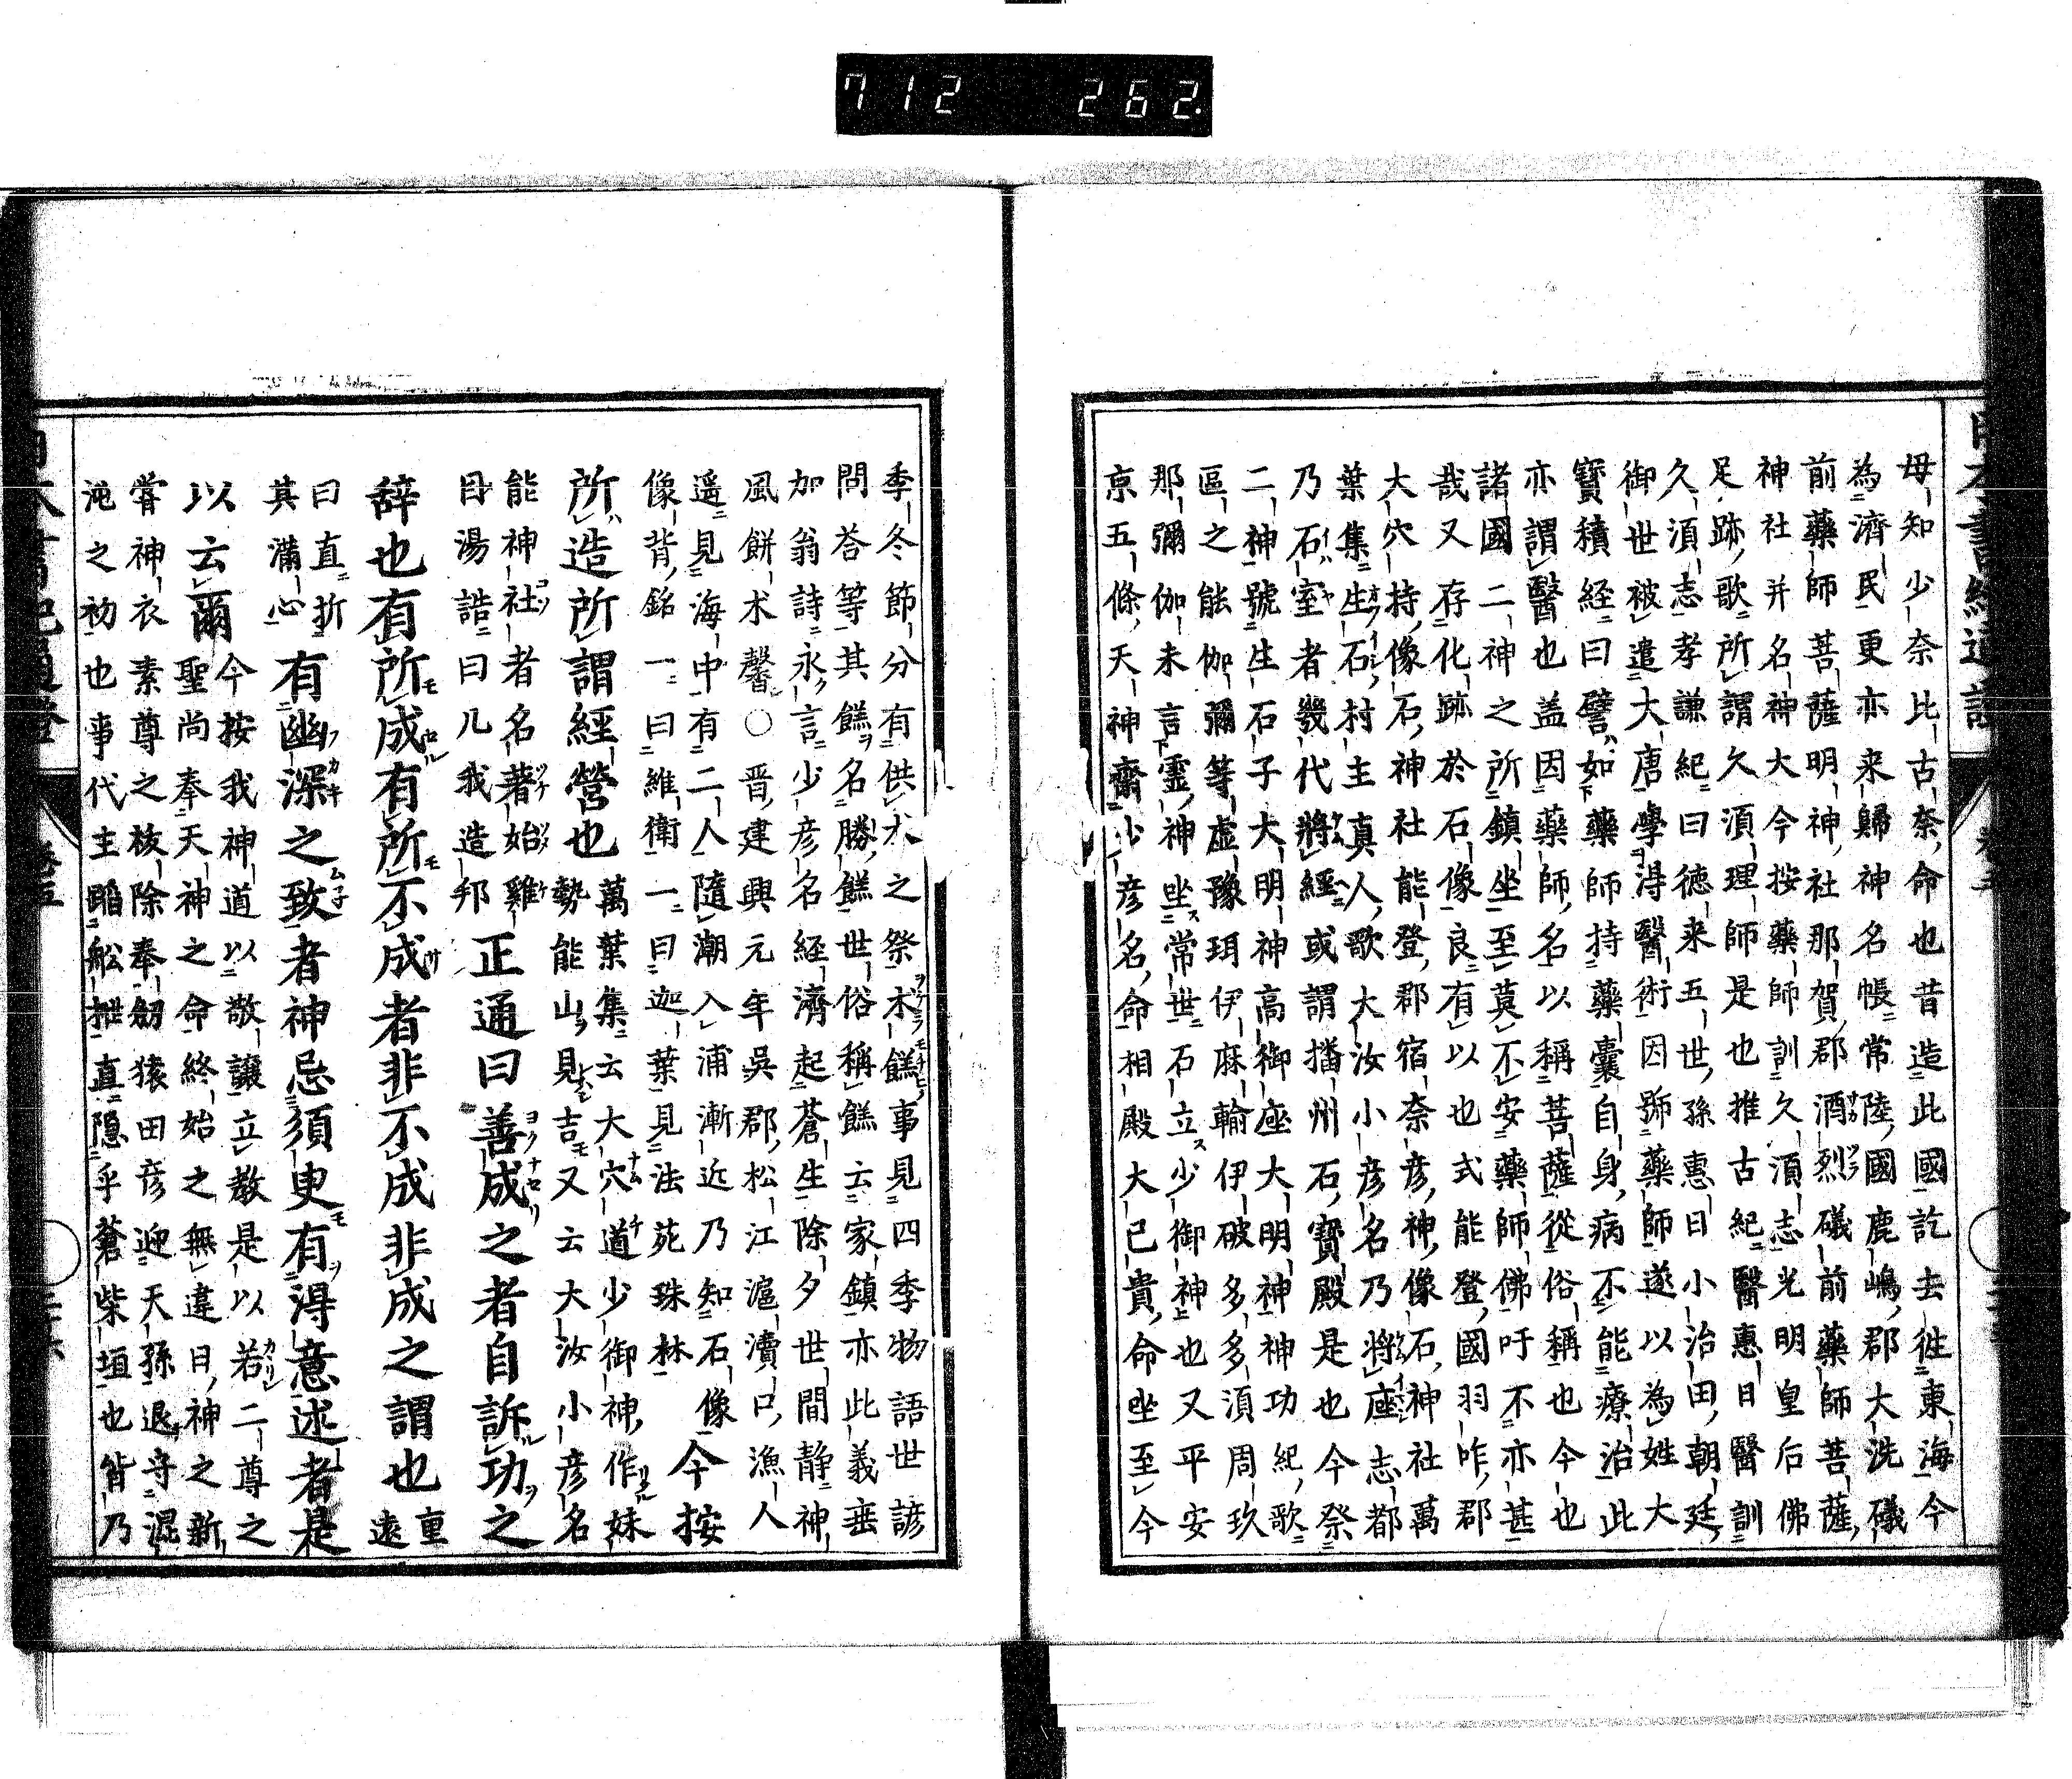 712 262
母知少奈比古奈命也昔造此國訖去徃東海今
為濟民更亦来歸神名帳常陸國鹿嶋郡大洗礒
前藥師菩薩明神社那賀郡酒烈礒前藥師菩薩
神社并名神大今按藥師訓久湏志光明皇后佛
足跡歌所謂久湏理師是也推古紀醫惠日醫訓
久湏志孝謙紀曰徳来五世孫惠日小治田朝廷
御世被遣大唐學得醫術因號藥師遂以為姓大
寶積経曰譬如藥師持藥嚢自身病不能療治此
亦謂醫也盖因藥師名以稱菩薩從俗稱也今也
諸國二神之所鎮坐至莫不安藥師佛吁不亦甚
哉又存化跡於石像良有以也式能登國羽咋郡
大穴持像石神社能登郡宿奈彦神像石神社萬
葉集生石村主真人歌大汝小彦名乃將座志都
乃石室者幾代將經或謂播州石寶殿是也今祭
二神號生石子大明神高御座大明神神功紀歌
區之能伽彌等虚豫珥伊麻輸伊破多多湏周玖
那彌伽未言靈神坐常世石立少御神也又平安
京五條天神齋少彦名命相殿大已貴命坐至今
季冬節分有供朮之祭朮餻事見四季物語世諺
問荅等其餻名勝餻世俗稱餻云家鎮亦此義垂
加翁詩永言少彦名経濟起蒼生除夕世間静神
風餅朮馨〇晋建興元年吳郡松江滬瀆口漁人
遥見海中有二人隨潮入浦漸近乃知石像
像背銘一曰維衛一曰迦葉見法苑珠林
今按
所造所謂經營也
萬葉集云大穴道少御神作妹
勢能山見吉又云大汝小彦名
能神社者名著始雞
目湯誥曰凡我造邦
正通曰善成之者自訴功之
辞也有所成有所不成者非不成非成之謂也
重遠
曰直折
其滿心
有幽深之致者神忌須臾有得意述者是
以云爾
今按我神道以敬讓立教是以若二尊之
聖尚奉天神之命終始之無違日神之新
嘗神衣素尊之祓除奉劔猿田彦迎天孫退守混
沌之初也事代主蹈舩拙直隐乎蒼柴垣也皆乃